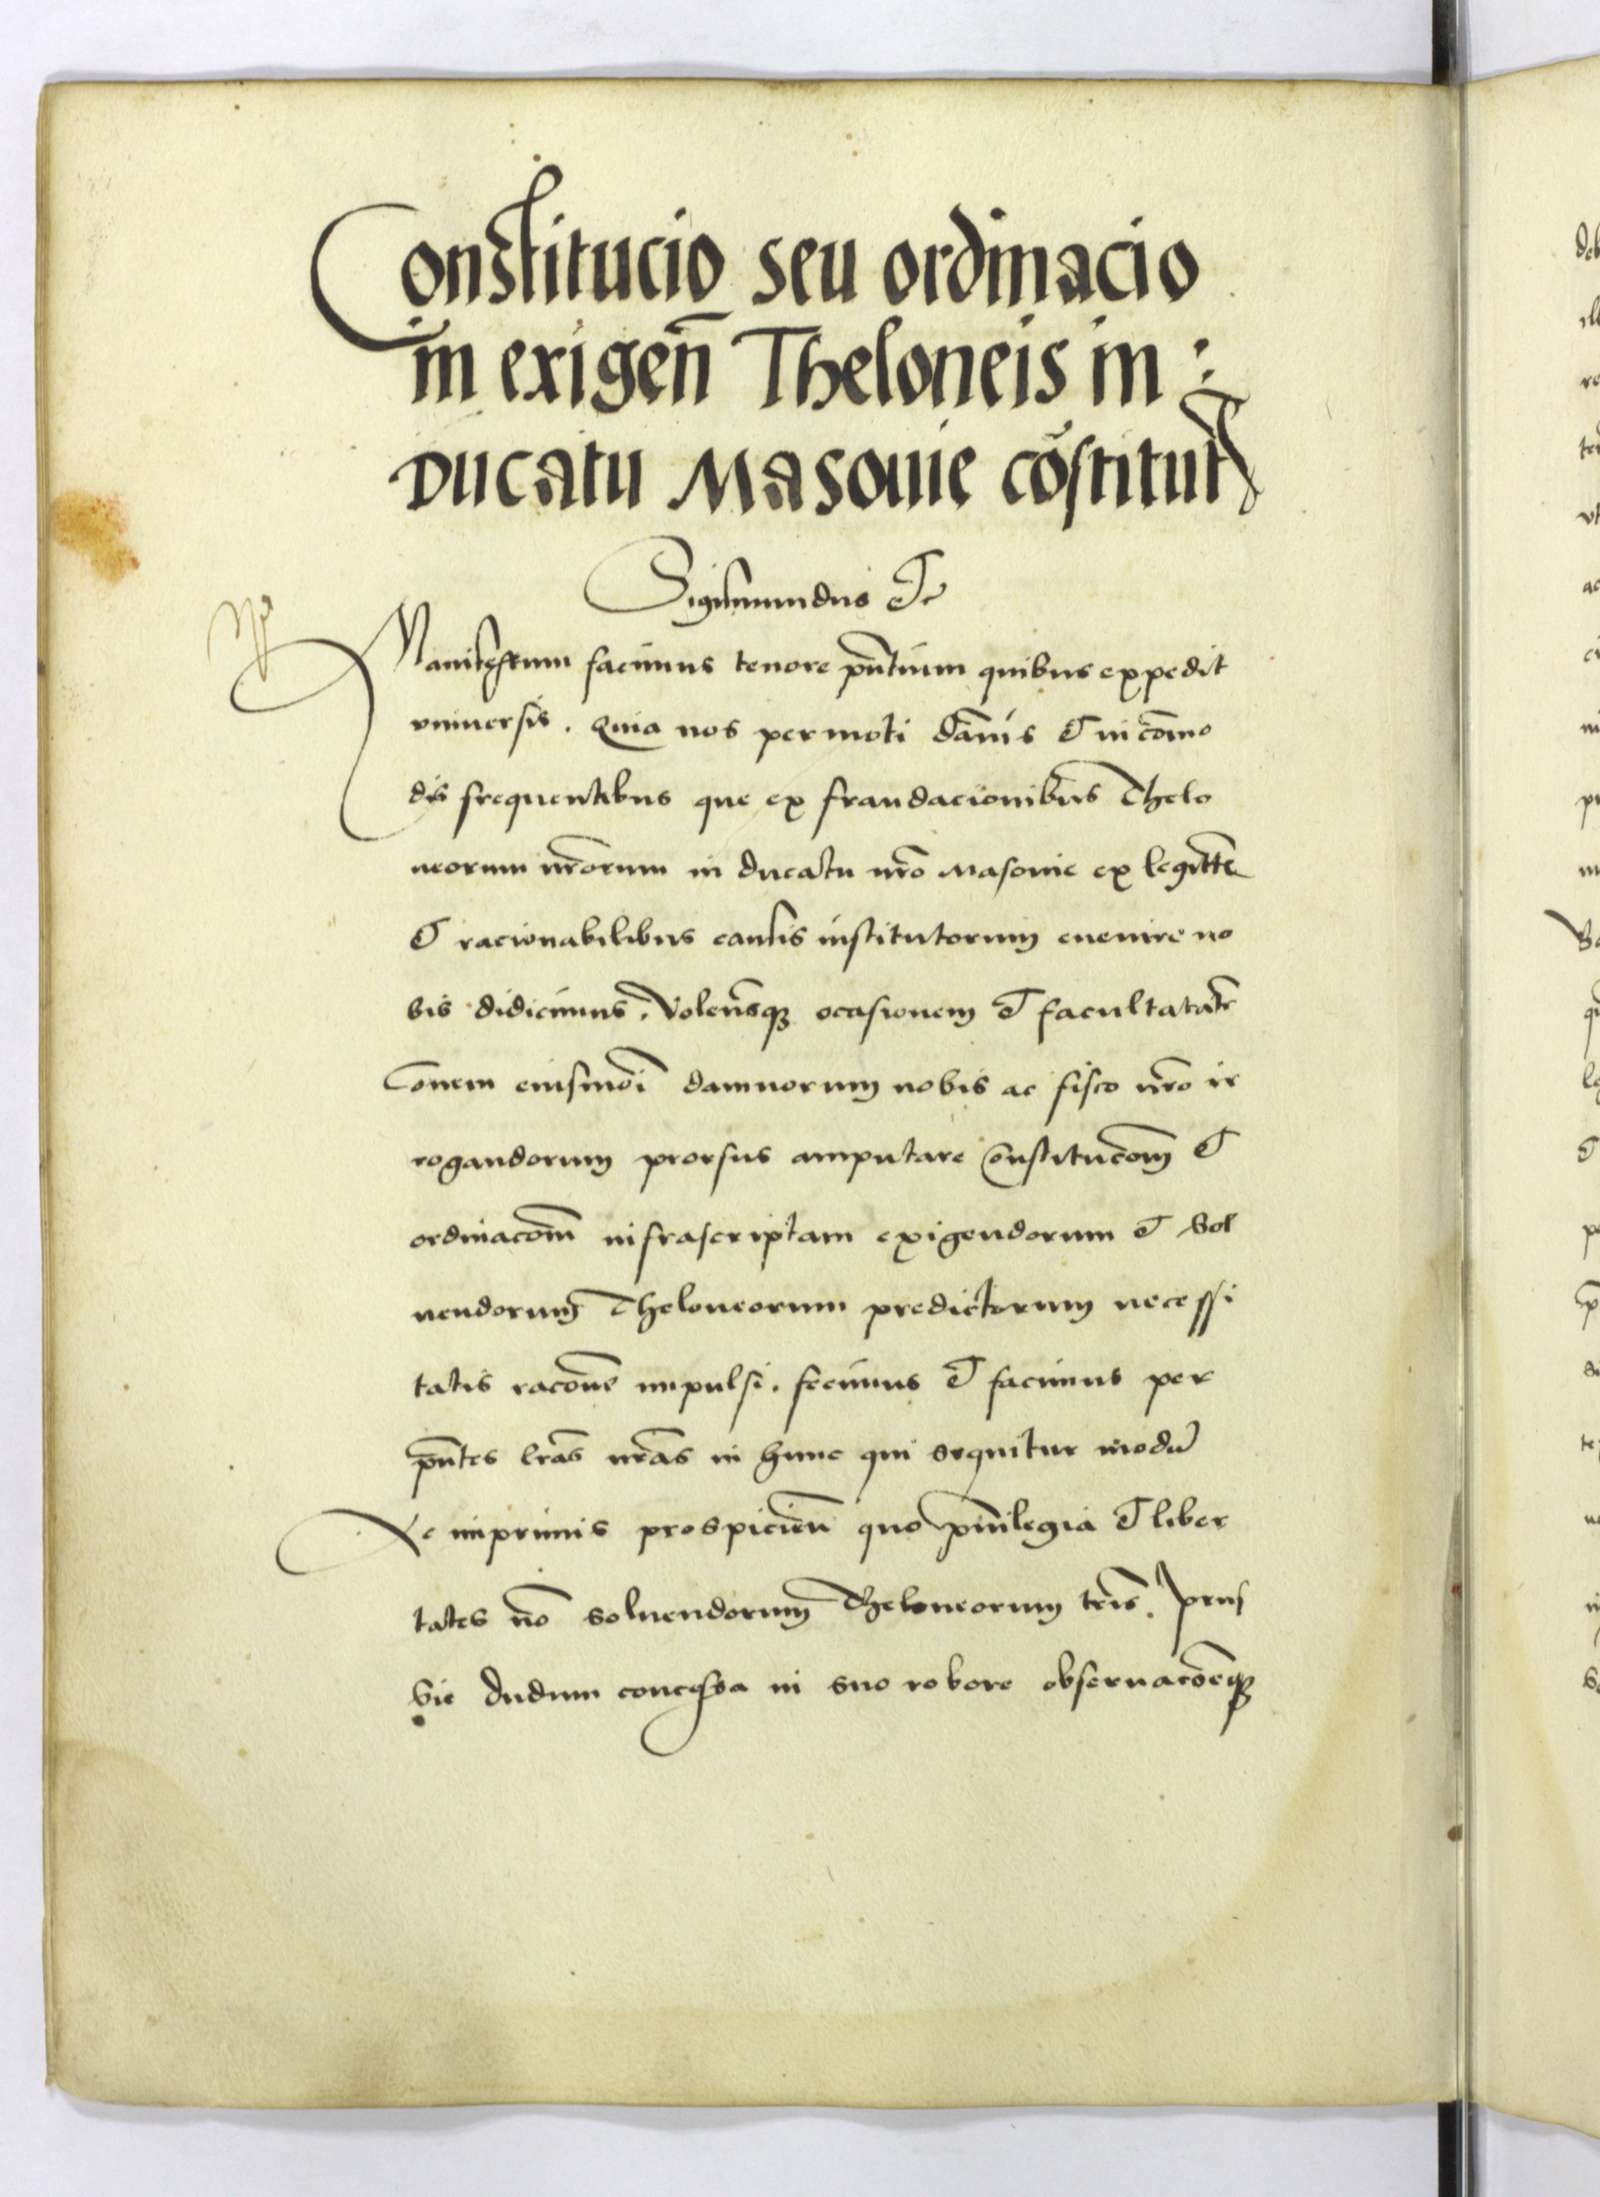 Constitucio seu ordinacio
in exigen̄ Theloneis in :
Ducatu Masouie cōstitut
Sigismundus Etc
Manifestum facimus tenore pn̄tium quibus expedit
vniuersis . Quia nos permoti dāmis et incōmo
dis frequentibus que ex fraudacionibus Thelo
neorum nrōrum in ducatu nrō Masouie ex legittīs
et racionabilibus causis institutorum euenire no
bis didicimus . Volen̄sque ocasionem et facultatem
omnem eiusmōi damnorum nobis ac fisco nrō ir
rogandorum prorsus amputare constitucōm et
ordinacōm infrascriptam exigendorum et sol
uendorum Theloneorum predictorum necessi
tatis racōne impulsi . fecimus et facimus per
pn̄tes lrās nrās in hunc qui sequitur modū
Ac imprimis prospicien̄ quo priuilegia et liber
tates nō soluendorum Theloneorum terrīs Prus
sie dudum concessa in suo robore obseruacōeque